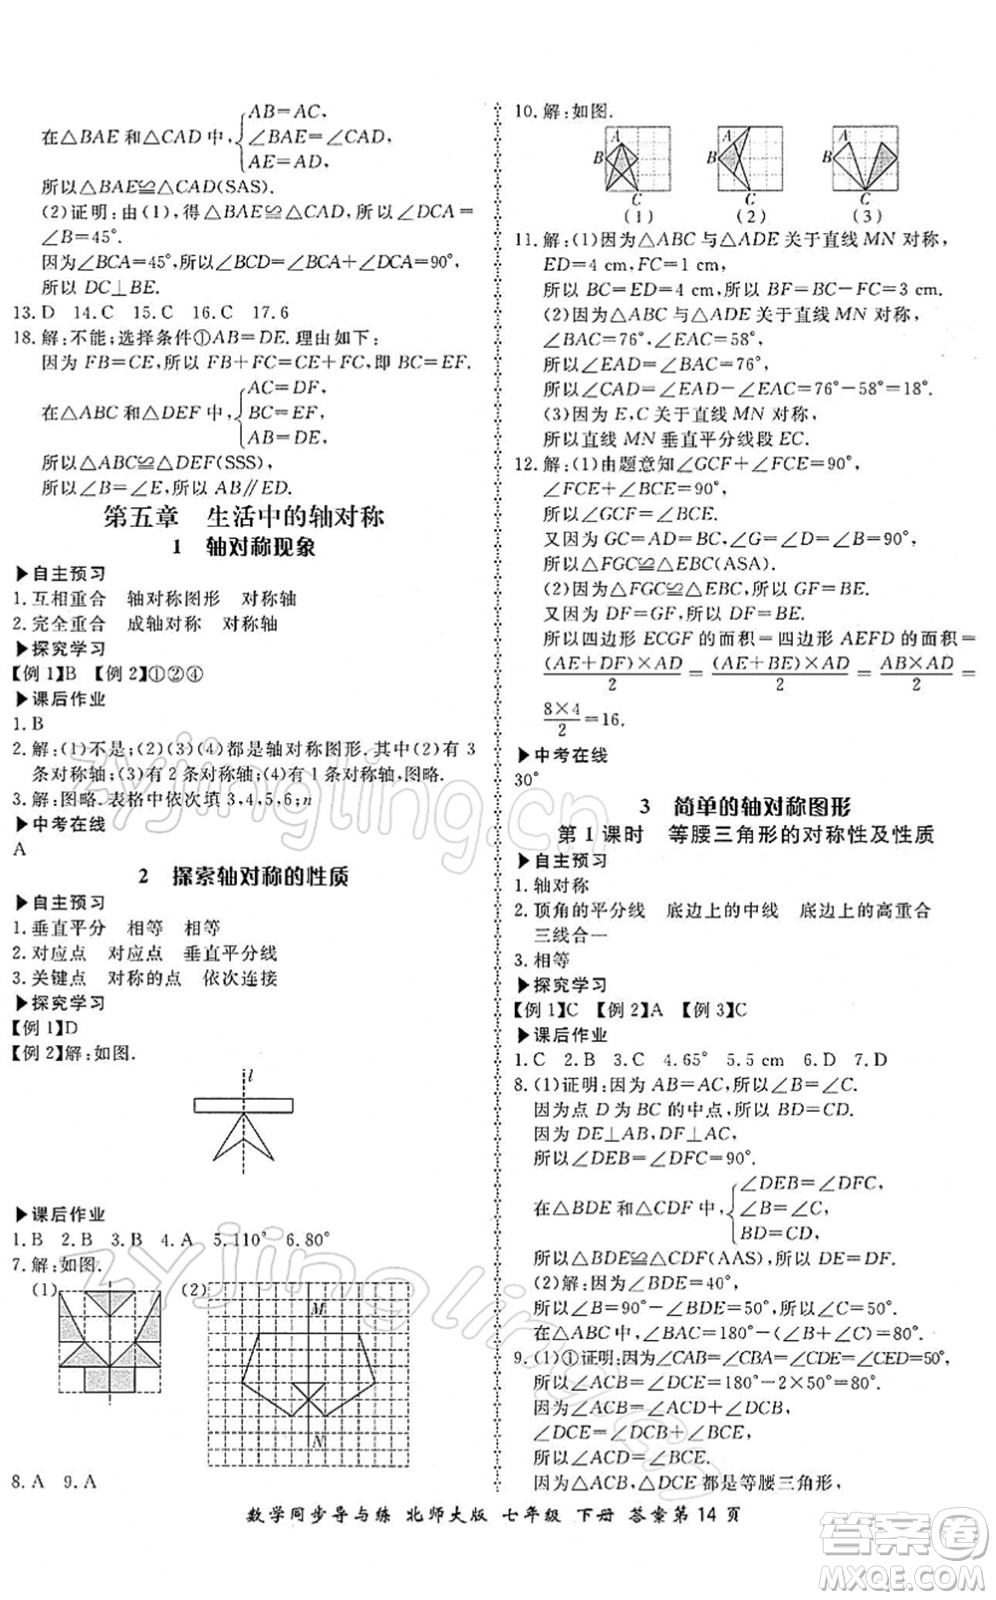 AB=AC,
在△BAE 和△CAD 中, ∠BAE=∠CAD,
AE=AD,
所以△BAE≌△CAD(SAS).
(2)证明:由(1),得△BAE≌△CAD,所以∠DCA=
∠B=45°.
因为∠BCA=45°,所以∠BCD=∠BCA+∠DCA=90°,
所以 DC⊥BE.
13. D 14. C 15. C 16. C 17. 6
18. 解:不能;选择条件①AB=DE.理由如下:
因为 FB=CE,所以 FB+FC=CE+FC,即 BC=EF.
AC=DF,
在△ABC 和△DEF 中, BC=EF,
AB=DE,
所以△ABC≌△DEF(SSS),
所以∠B=∠E,所以 AB∥ED.
第五章 生活中的轴对称
1 轴对称现象
▶自主预习
1. 互相重合 轴对称图形 对称轴
2. 完全重合 成轴对称 对称轴
▶探究学习
【例 1】B 【例 2】①②④
▶课后作业
1. B
2. 解:(1)不是;(2)(3)(4)都是轴对称图形.其中(2)有 3
条对称轴;(3)有 2 条对称轴;(4)有 1 条对称轴,图略.
3. 解:图略.表格中依次填 3,4,5,6;n
▶中考在线
A
2 探索轴对称的性质
▶自主预习
1. 垂直平分 相等 相等
2. 对应点 对应点 垂直平分线
3. 关键点 对称的点 依次连接
▶探究学习
【例 1】D
【例 2】解:如图.
l
▶课后作业
1. B 2. B 3. B 4. A 5. 110° 6. 80°
7. 解:如图.
(1) (2)
M
N
8. A 9. A
10. 解:如图.
A B C
A B C
A B C
(1) (2) (3)
11. 解:(1)因为△ABC 与△ADE 关于直线 MN 对称,
ED=4 cm,FC=1 cm,
所以 BC=ED=4 cm,所以 BF=BC-FC=3 cm.
(2)因为△ABC 与△ADE 关于直线 MN 对称,
∠BAC=76°,∠EAC=58°,
所以∠EAD=∠BAC=76°,
所以∠CAD=∠EAD-∠EAC=76°-58°=18°.
(3)因为 E,C 关于直线 MN 对称,
所以直线 MN 垂直平分线段 EC.
12. 解:(1)由题意知∠GCF+∠FCE=90°,
∠FCE+∠BCE=90°,
所以∠GCF=∠BCE.
又因为 GC=AD=BC,∠G=∠D=∠B=90°,
所以△FGC≌△EBC(ASA).
(2)因为△FGC≌△EBC,所以 GF=BE.
又因为 DF=GF,所以 DF=BE.
所以四边形 ECGF 的面积=四边形 AEFD 的面积=
(AE+DF)×AD/2=(AE+BE)×AD/2=AB×AD/2=
8×4/2=16.
▶中考在线
30°
3 简单的轴对称图形
第 1 课时 等腰三角形的对称性及性质
▶自主预习
1. 轴对称
2. 顶角的平分线 底边上的中线 底边上的高重合
三线合一
3. 相等
▶探究学习
【例 1】C 【例 2】A 【例 3】C
▶课后作业
1. C 2. B 3. C 4. 65° 5. 5 cm 6. D 7. D
8. (1)证明:因为 AB=AC,所以∠B=∠C.
因为点 D 为 BC 的中点,所以 BD=CD.
因为 DE⊥AB,DF⊥AC,
所以∠DEB=∠DFC=90°.
∠DEB=∠DFC,
在△BDE 和△CDF 中, ∠B=∠C,
BD=CD,
所以△BDE≌△CDF(AAS),所以 DE=DF.
(2)解:因为∠BDE=40°,
所以∠B=90°-∠BDE=50°,所以∠C=50°.
在△ABC 中,∠BAC=180°-(∠B+∠C)=80°.
9. (1)①证明:因为∠CAB=∠CBA=∠CDE=∠CED=50°,
所以∠ACB=∠DCE=180°-2×50°=80°.
因为∠ACB=∠ACD+∠DCB,
∠DCE=∠DCB+∠BCE,
所以∠ACD=∠BCE.
因为△ACB、△DCE 都是等腰三角形,
数学同步导与练 北师大版 七年级 下册 答案第 14 页
zyjingling.cn
zyjingling.cn
答案圈
MXQE.COM